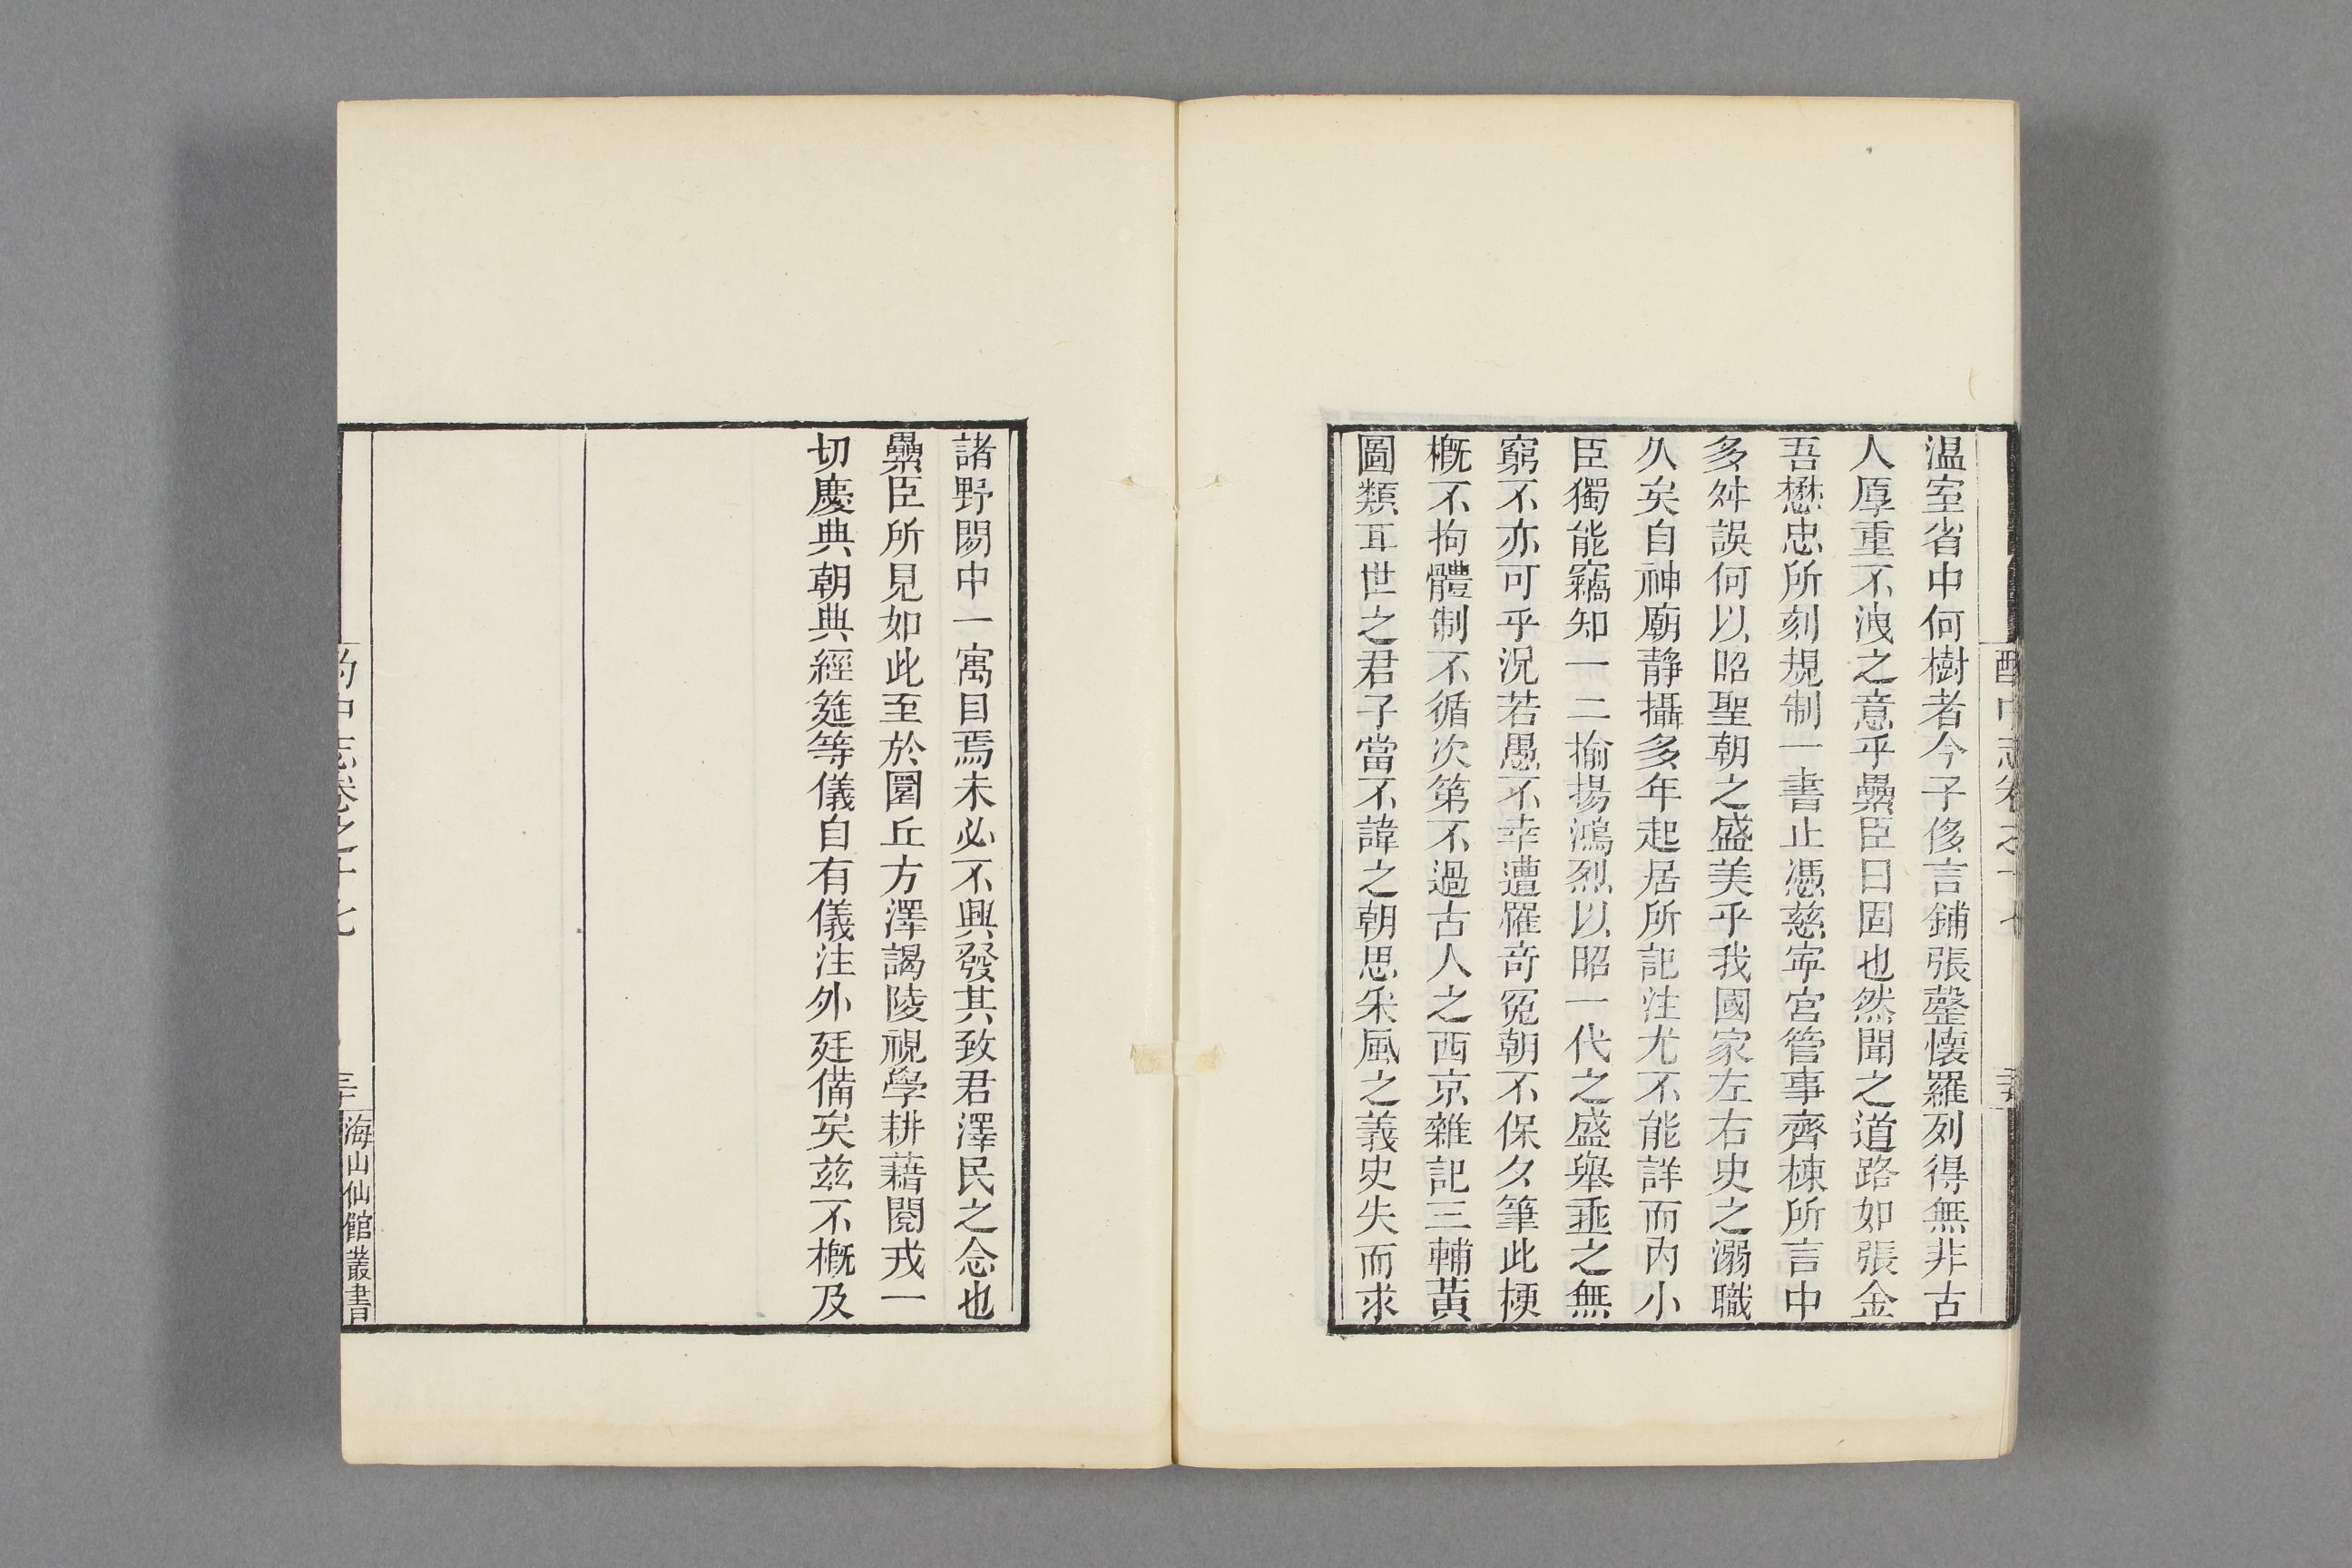 酌中志卷之十七
温室省中何樹者今子侈言鋪張罄懷羅列得無非古
人厚重不洩之意乎纍臣曰固也然聞之道路如張金
吾懋忠所刻規制一書止憑慈寧宮管事齊棟所言中
多舛誤何以昭聖朝之盛美乎我國家左右史之溺職
久矣自神廟靜攝多年起居所記注尤不能詳而內小
臣獨能竊知一二揄揚鴻烈以昭一代之盛舉垂之無
窮不亦可乎況若愚不幸遭罹奇冤朝不保夕筆此梗
概不拘體制不循次第不過古人之西京雜記三輔黃
圖類耳世之君子當不諱之朝思采風之義史失而求
諸野閱中一寓目焉未必不興發其致君澤民之念也
纍臣所見如此至於圜丘方澤謁陵視學耕藉閱戎一
切慶典朝典經筵等儀自有儀注外廷備矣茲不概及
酌中志卷之十七
海山仙館叢書